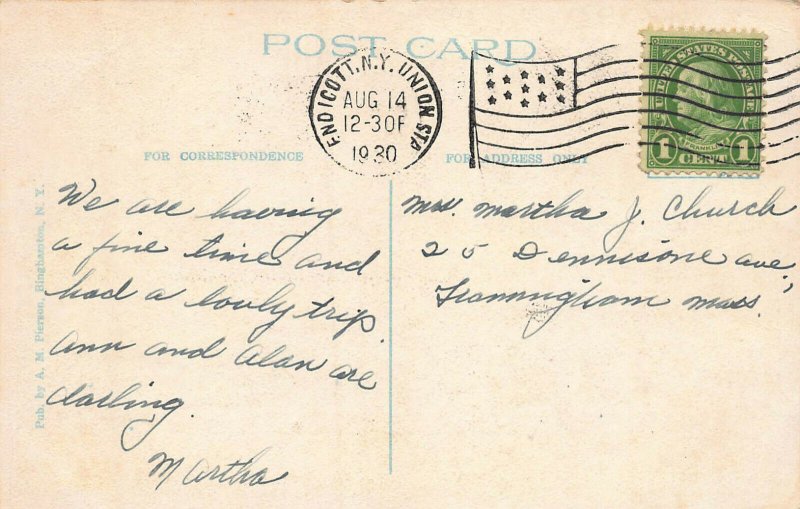 POST CARD
ENDICOTT, N.Y. UNION STA.
AUG 14
12-30P
1930
UNITED STATES POSTAGE
FRANKLIN
1 CENT 1
FOR CORRESPONDENCE
FOR ADDRESS ONLY
Pub. by A. M. Pierson, Binghamton, N. Y.
We are having
a fine time and
had a lovly trip.
Ann and Alan are
darling.
Martha
Mrs. Martha J. Church
25 Dennisone ave.,
Framingham Mass.